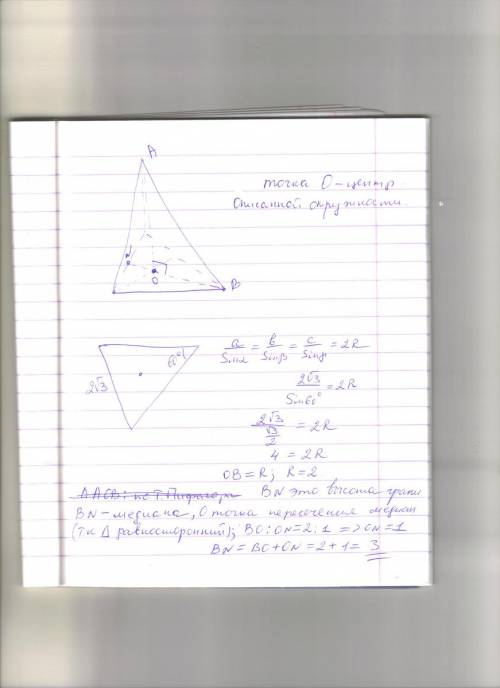 A
точка О-центр
описанной окружности.
N
O
B
a/Sinα = b/Sinβ = c/Sinγ = 2R
60°
2√3
2√3/Sin60° = 2R
2√3/(√3/2) = 2R
4 = 2R
OB = R; R = 2
BN это высота грани
BN-медиана, О точка пересечения медиан
(т.к Δ равносторонний); BO:ON=2:1 => ON=1
BN = BO+ON = 2+1 = 3